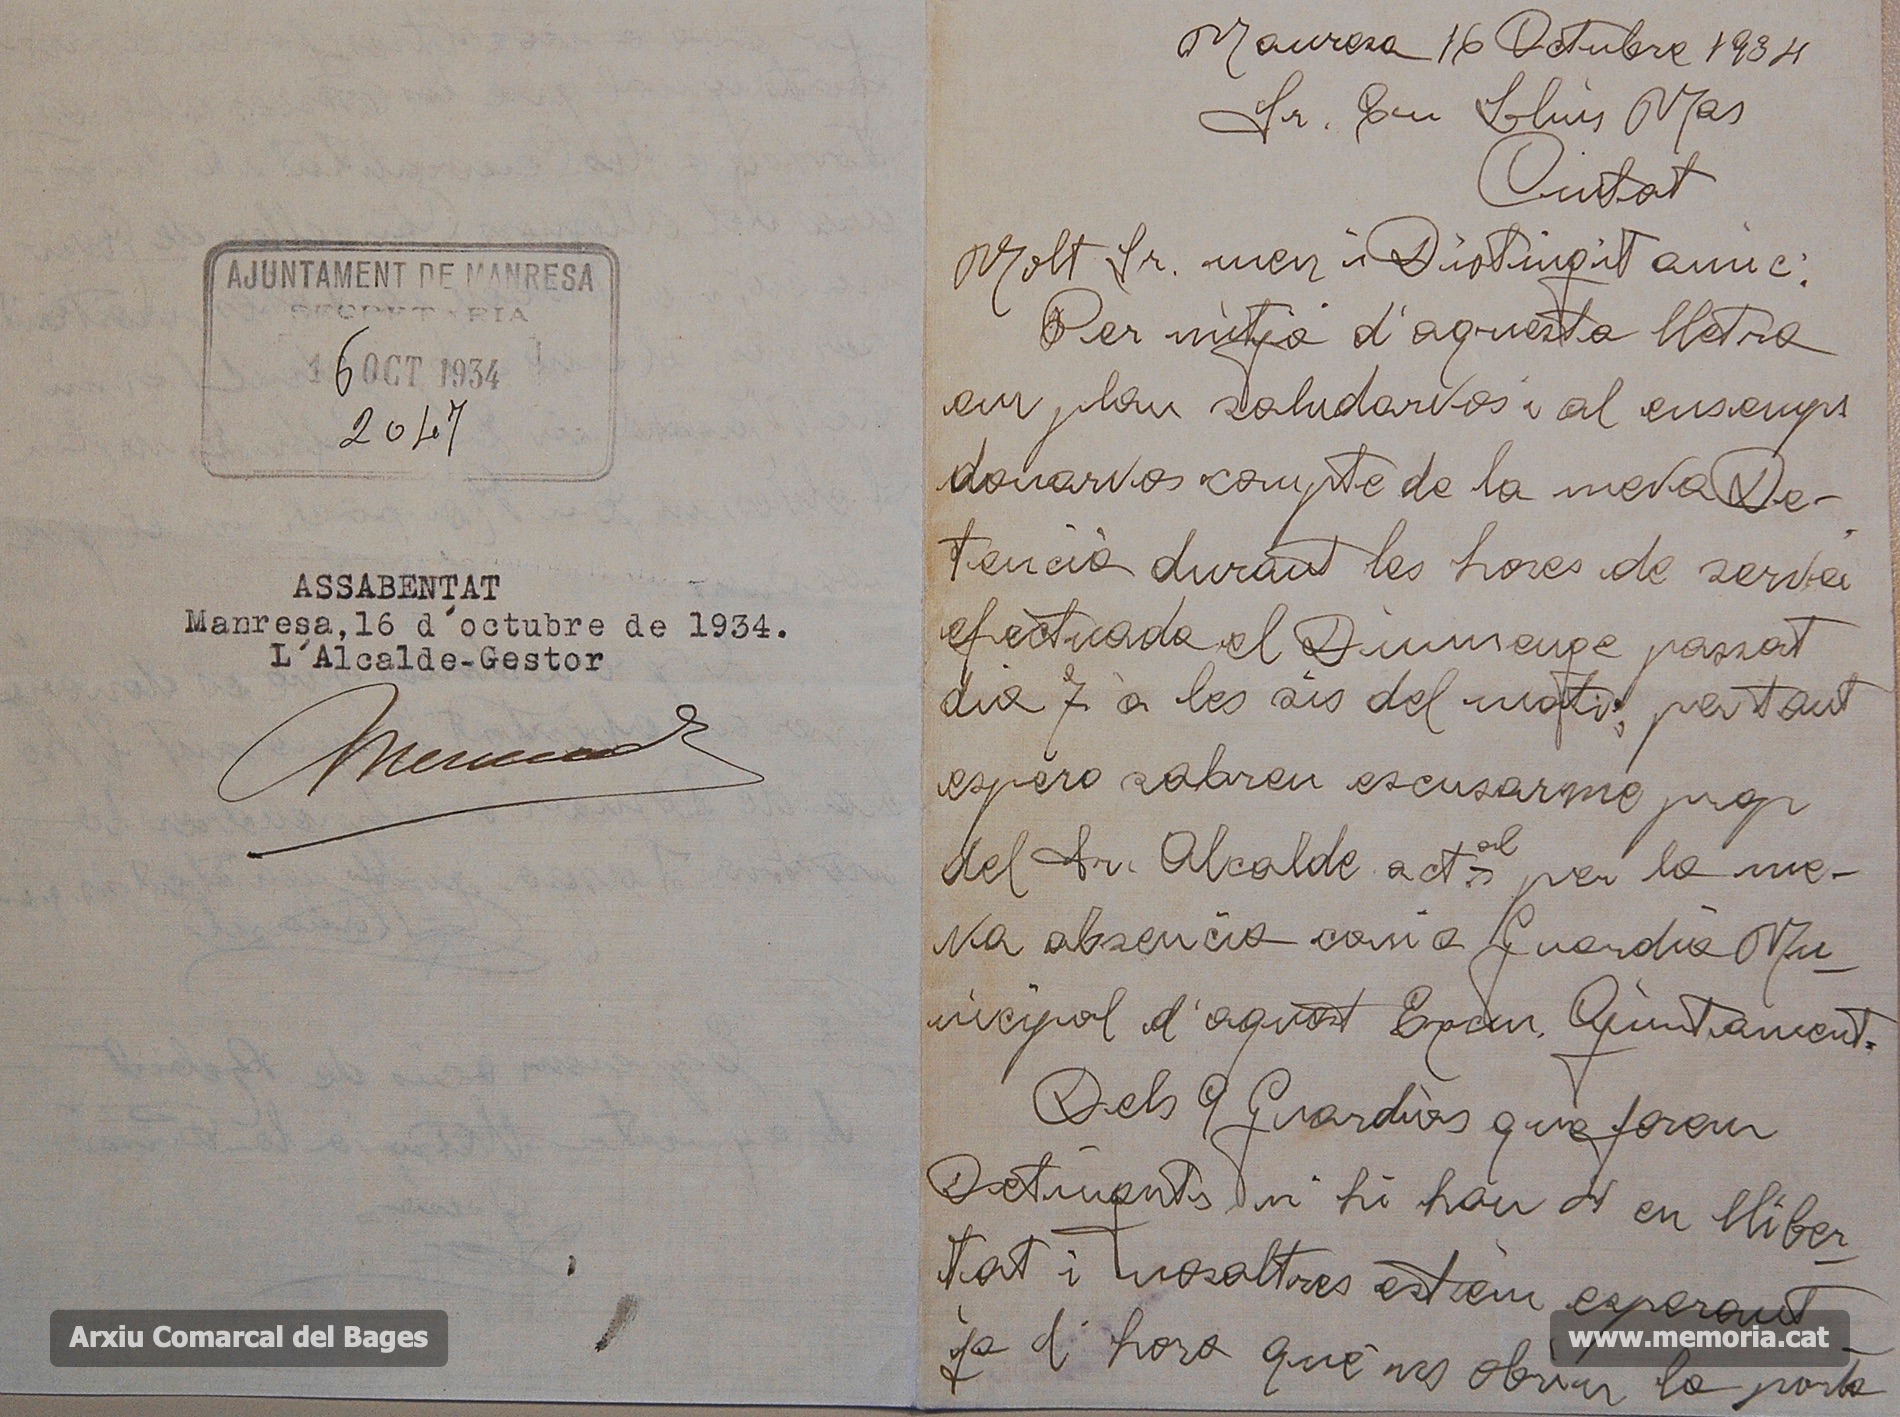 AJUNTAMENT DE MANRESA
SECRETARIA
16 OCT 1934
2047
ASSABENTAT
Manresa, 16 d'octubre de 1934.
L'Alcalde-Gestor
Manresa 16 Octubre 1934
Sr. En Lluis Mas
Ciutat
Molt Sr. meu i Distingit amic:
Per mitja d'aquesta lletra
em plau saludarvos i al ensemps
donarvos compte de la meva De-
tencia durant les hores de servei
efectuada el Diumenge passat
dia 7 a les sis del mati; per tant
espero sabreu escusarme prop
del Sr. Alcalde actal per la me-
va absencia com a Guardia Mu-
nicipal d'aquest Excm. Ajuntament.
Dels 9 Guardias que forem
Detinguts n'hi han 4 en lliber-
tat i nosaltres estem esperant
ja d'hora que ns obrin la porta
Arxiu Comarcal del Bages
www.memoria.cat